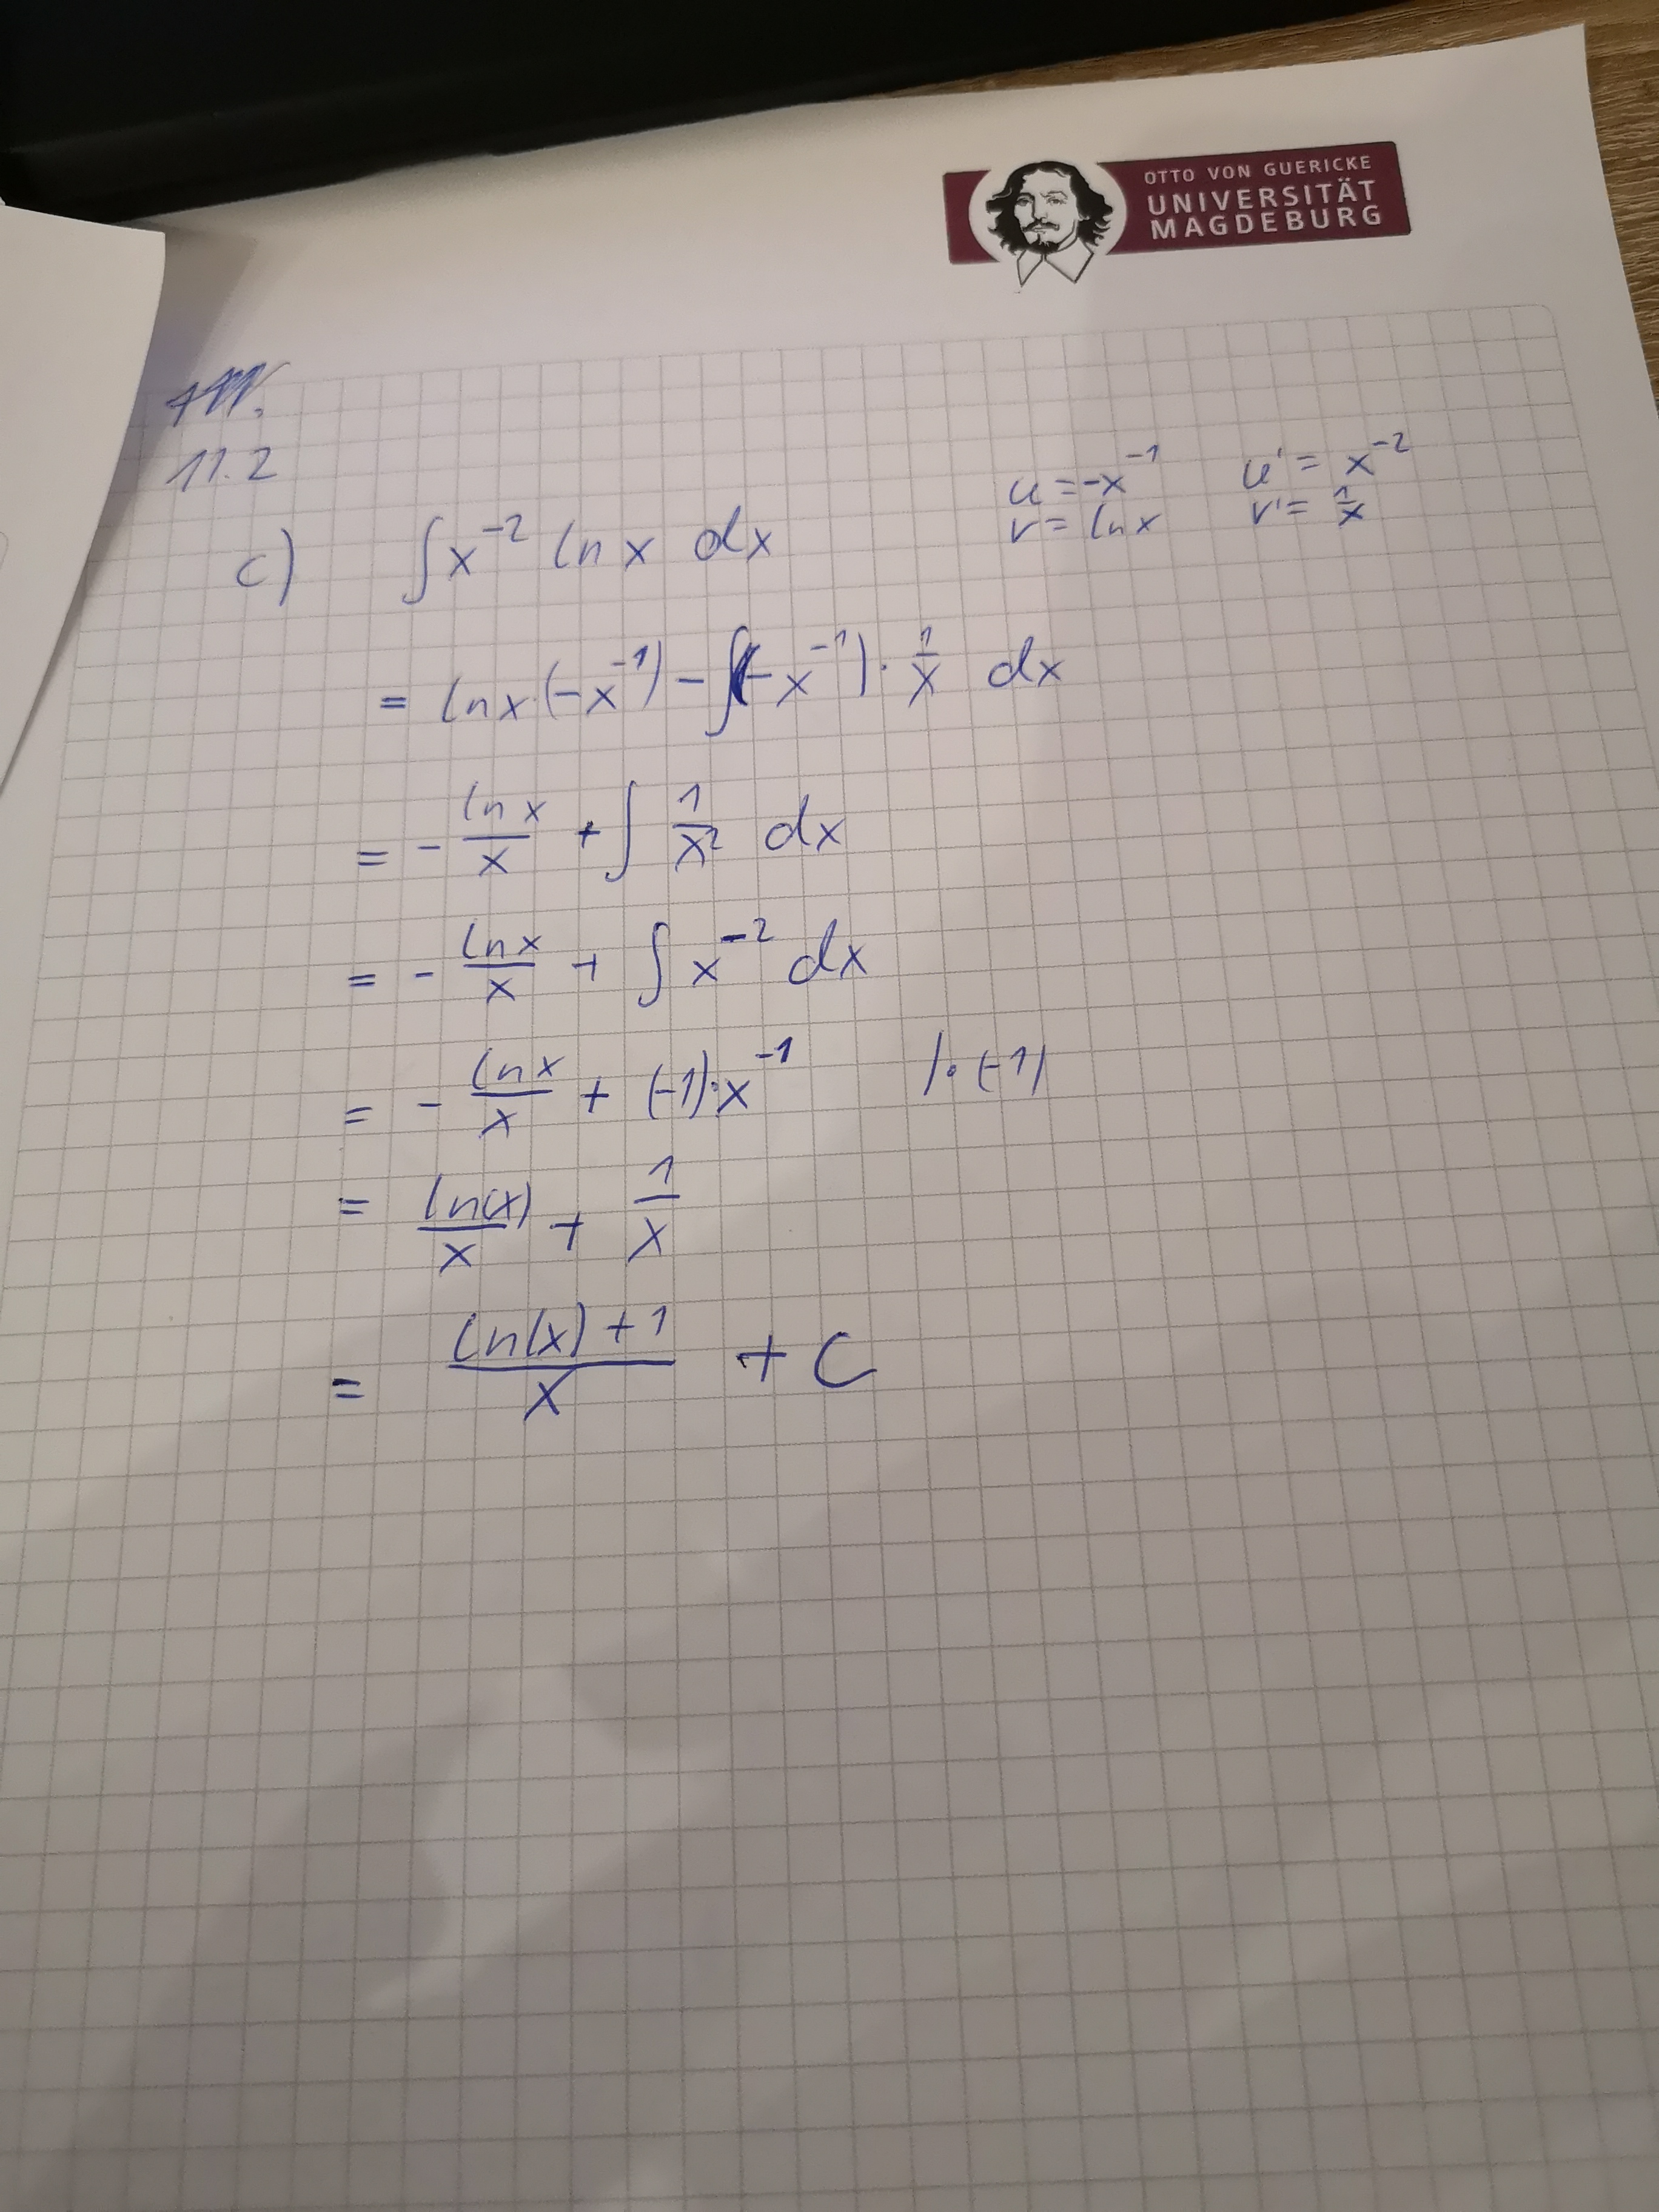 OTTO VON GUERICKE
UNIVERSITÄT
MAGDEBURG
11.2
u = -x⁻¹ u' = x⁻²
v = ln x v' = 1/x
c) ∫ x⁻² ln x dx
= ln x · (-x⁻¹) - ∫(-x⁻¹) · 1/x dx
= - ln x / x + ∫ 1/x² dx
= - ln x / x + ∫ x⁻² dx
= - ln x / x + (-1) · x⁻¹ | · (-1)
= ln(x) / x + 1/x
= (ln(x) + 1) / x + C